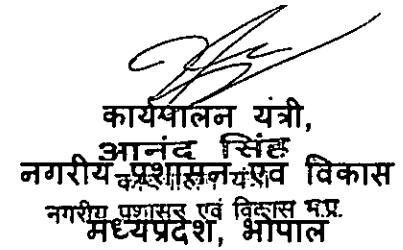 कार्यपालन यंत्री,
आनंद सिंह
नगरीय प्रशासन एवं विकास
कार्यपालन यंत्री
नगरीय प्रशासन एवं विकास म.प्र.
मध्यप्रदेश, भोपाल